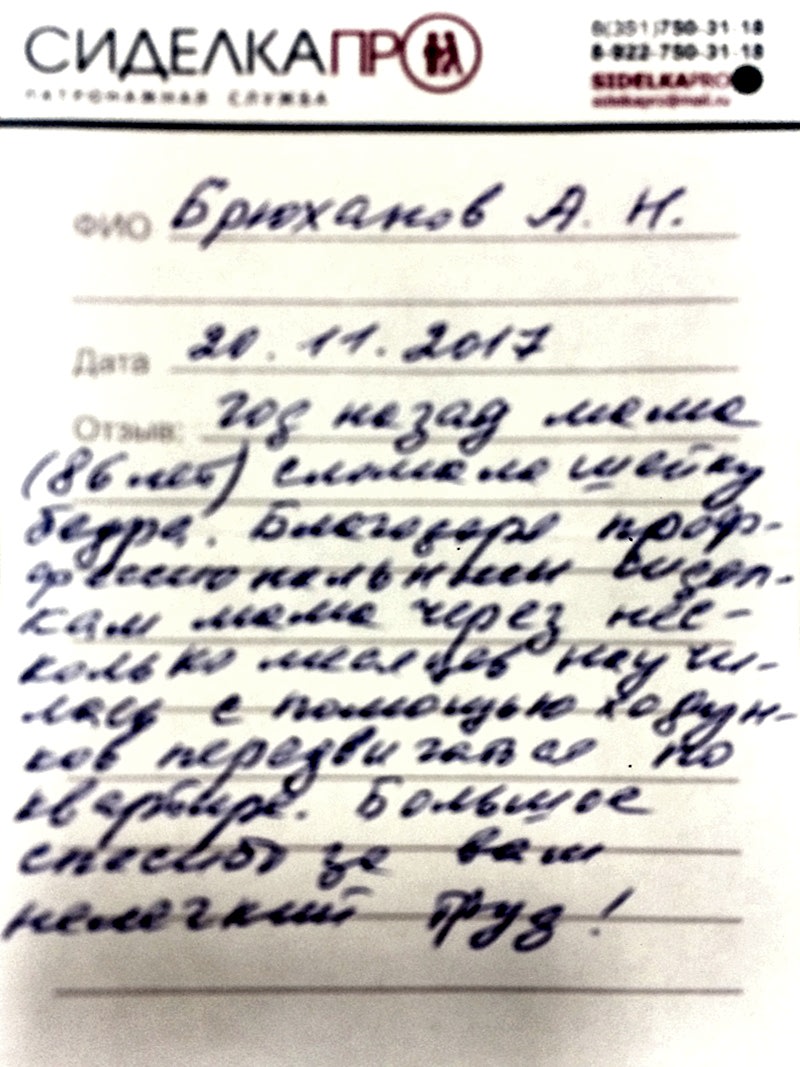 СИДЕЛКАПРО
ПАТРОНАЖНАЯ СЛУЖБА
8(351)750-31-18
8-922-750-31-18
SIDELKAPRO
sidelkapro@mail.ru
ФИО Брюханов А. Н.
Дата 20.11.2017
Отзыв: Год назад мама
(86 лет) сломала шейку
бедра. Благодаря проф-
фессиональным сидел-
кам мама через нес-
колько месяцев научи-
лась с помощью ходун-
ков передвигаться по
квартире. Большое
спасибо за ваш
нелегкий труд!